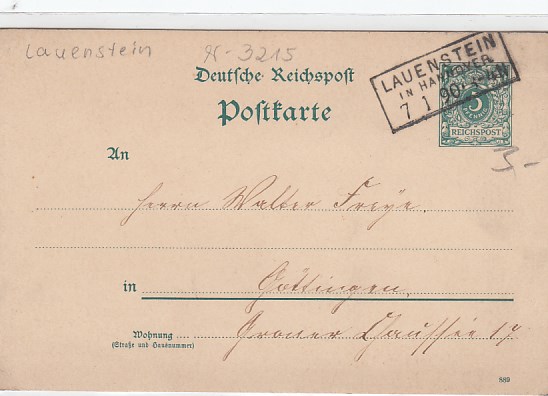 Lauenstein
Deutsche Reichspost
Postkarte
LAUENSTEIN
IN HANNOVER
7 1 90
5
REICHSPOST
3-
An
Herrn Walter Freye.
in Göttingen,
Wohnung Groner Chaussée 17
(Straße und Hausnummer)
889